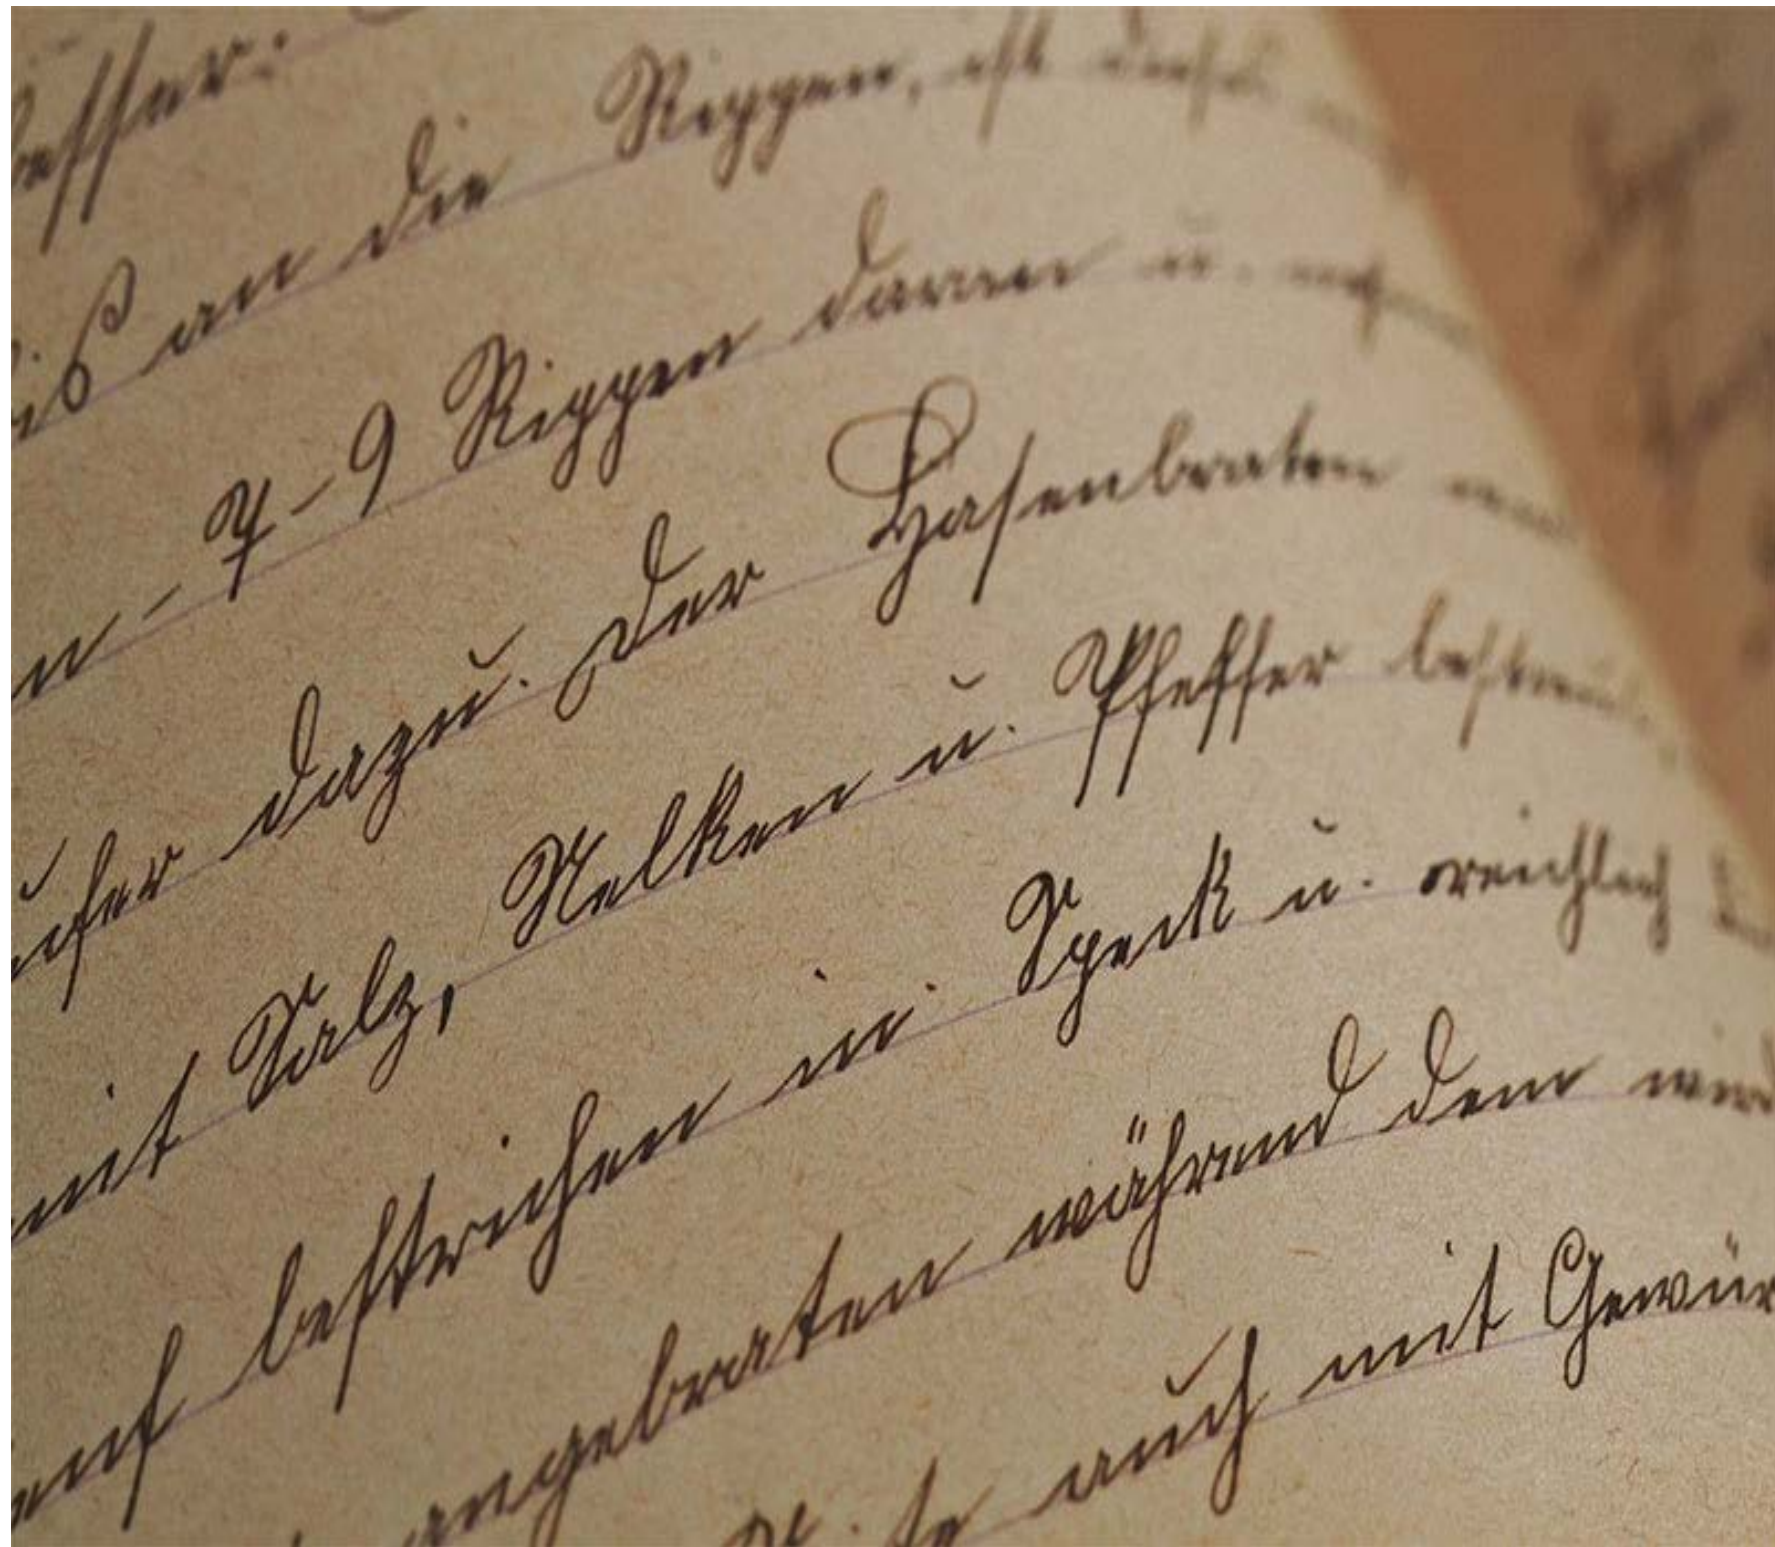 besser.
bis an die Rippen, ist diese
7-9 Rippen daran u.
dazu. Der Hasenbraten
mit Salz, Nelken u. Pfeffer bestreut
Senf bestrichen in Speck u. reichlich
angebraten während dem wird
auch mit Gewür